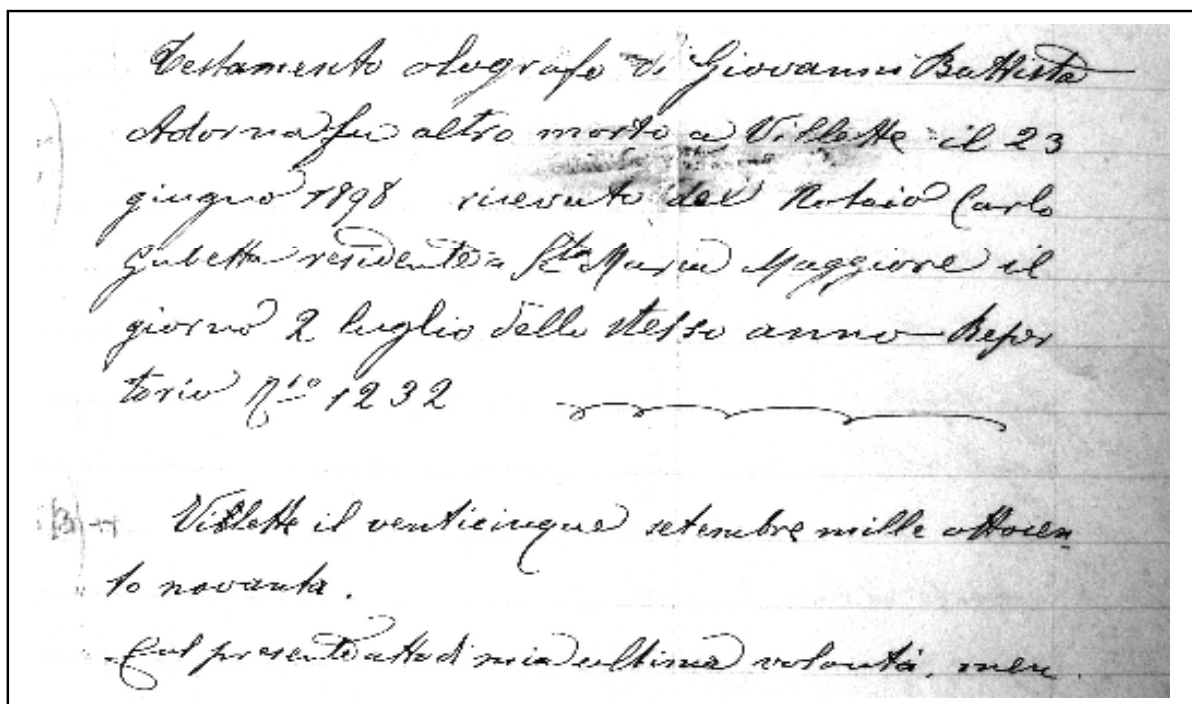 Testamento olografo di Giovanni Battista
Adorna fu altro morto a Villette il 23
giugno 1898 ricevuto del Notaio Carlo
Gubetta residente a Sta Maria Maggiore il
giorno 2 luglio dello stesso anno – Reper
torio No 1232
Villette il venticinque setembre mille ottocen
to novanta.
Col presente atto di mia ultima volontà,